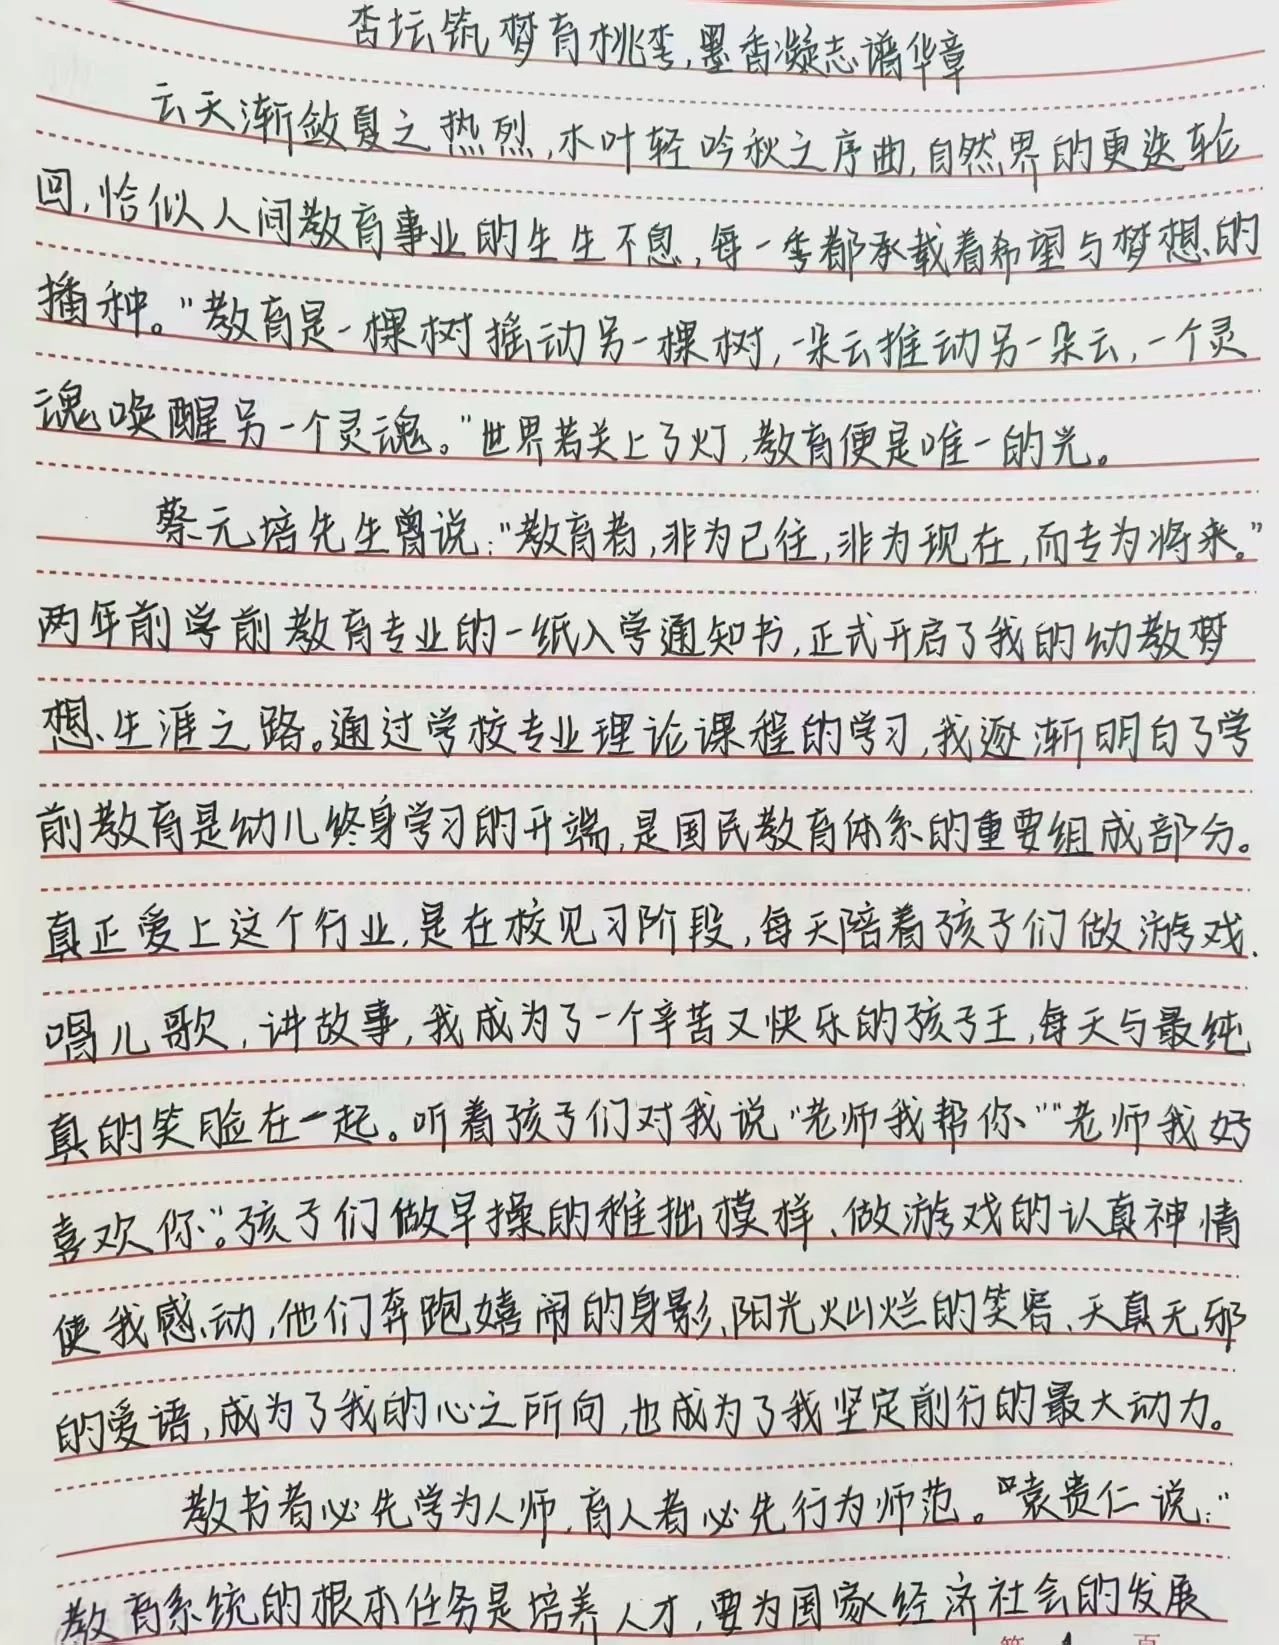 杏坛筑梦育桃李,墨香凝志谱华章
云天渐敛夏之热烈,木叶轻吟秋之序曲,自然界的更迭轮
回,恰似人间教育事业的生生不息,每一季都承载着希望与梦想的
播种。"教育是一棵树摇动另一棵树,一朵云推动另一朵云,一个灵
魂唤醒另一个灵魂。"世界若关上了灯,教育便是唯一的光。
蔡元培先生曾说:"教育者,非为已往,非为现在,而专为将来。"
两年前学前教育专业的一纸入学通知书,正式开启了我的幼教梦
想生涯之路。通过学校专业理论课程的学习,我逐渐明白了学
前教育是幼儿终身学习的开端,是国民教育体系的重要组成部分。
真正爱上这个行业,是在校见习阶段,每天陪着孩子们做游戏、
唱儿歌,讲故事,我成为了一个辛苦又快乐的孩子王,每天与最纯
真的笑脸在一起。听着孩子们对我说"老师我帮你""老师我好
喜欢你"。孩子们做早操的稚拙模样、做游戏的认真神情
使我感动,他们奔跑嬉闹的身影、阳光灿烂的笑容、天真无邪
的爱语,成为了我的心之所向,也成为了我坚定前行的最大动力。
教书者必先学为人师,育人者必先行为师范。"袁贵仁说:"
教育系统的根本任务是培养人才,要为国家经济社会的发展
第 1 页